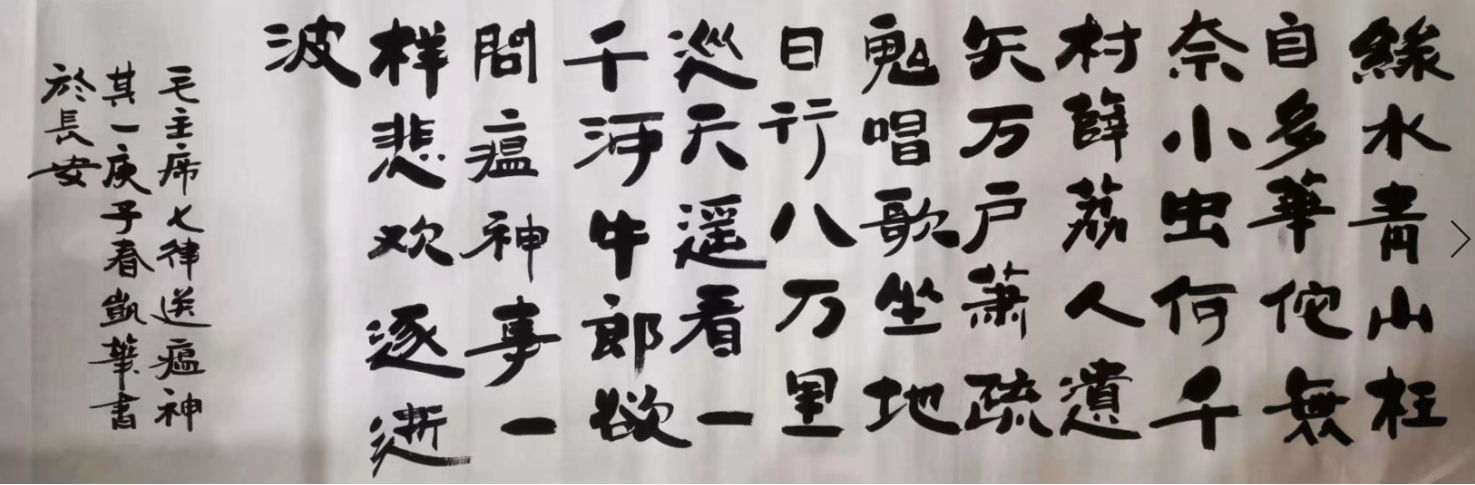 綠水青山枉
自多華佗無
奈小虫何千
村薜荔人遺
矢万户蕭疏
鬼唱歌坐地
日行八万里
巡天遥看一
千河牛郎欲
問瘟神事一
样悲欢逐逝
波
毛主席七律送瘟神
其一庚子春凱華書
於長安